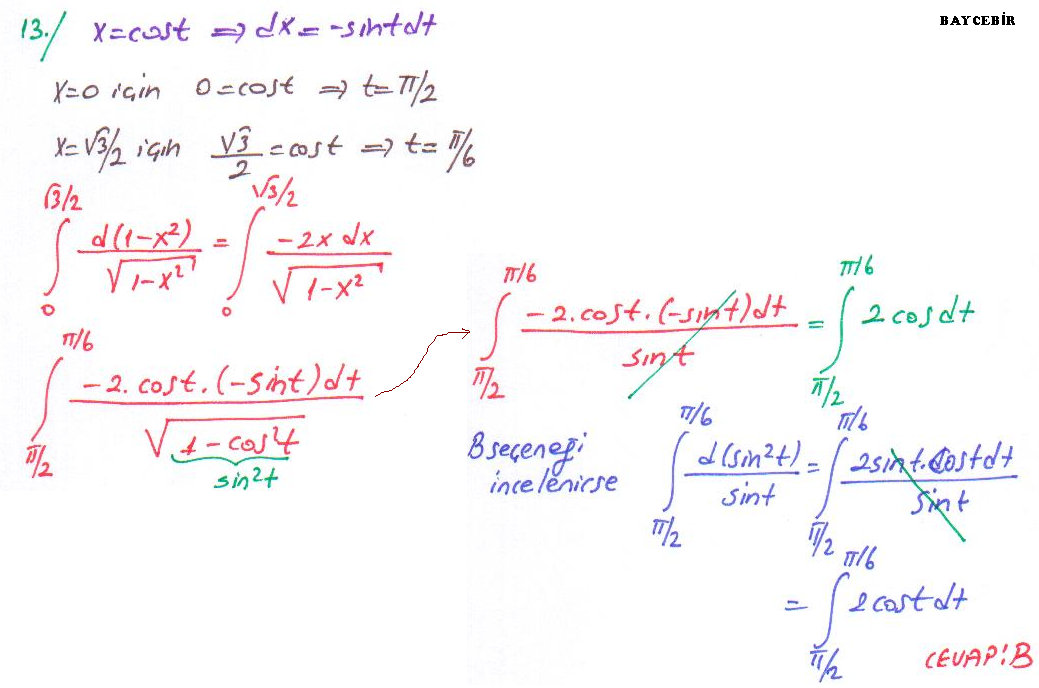 BAYCEBİR
13./ x=cost ⇒ dx=-sintdt
x=0 için 0=cost ⇒ t=π/2
x=√3/2 için √3/2=cost ⇒ t=π/6
∫_0^{√3/2} d(1-x²)/√(1-x²) = ∫_0^{√3/2} -2x dx/√(1-x²)
∫_{π/2}^{π/6} -2.cost.(-sint)dt/√(1-cos²t)
sin²t
∫_{π/2}^{π/6} -2.cost.(-sint)dt/sint = ∫_{π/2}^{π/6} 2cosdt
B seçeneği
incelenirse
∫_{π/2}^{π/6} d(sin²t)/sint = ∫_{π/2}^{π/6} 2sint.costdt/sint
= ∫_{π/2}^{π/6} 2costdt
CEVAP:B